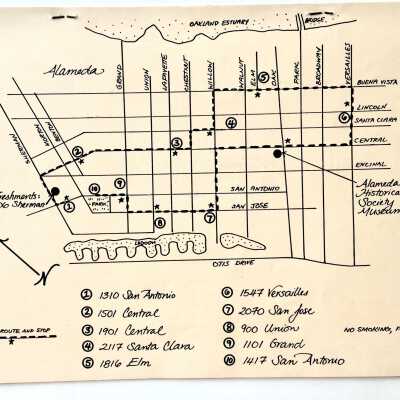 OAKLAND ESTUARY
BRIDGE
Alameda
GRAND
UNION
LAFAYETTE
CHESTNUT
WILLOW
WALNUT
ELM
OAK
PARK
BROADWAY
VERSAILLES
SHERMAN
MORTON
BENTON
BUENA VISTA
LINCOLN
SANTA CLARA
CENTRAL
ENCINAL
SAN ANTONIO
SAN JOSE
OTIS DRIVE
LAGOON
PARK
freshments:
Sherman
Alameda
Historical
Society
Museum
N
1
2
3
4
5
6
7
8
9
10
① 1310 San Antonio
② 1501 Central
③ 1901 Central
④ 2117 Santa Clara
⑤ 1816 Elm
⑥ 1547 Versailles
⑦ 2070 San Jose
⑧ 900 Union
⑨ 1101 Grand
⑩ 1417 San Antonio
ROUTE AND STOP
NO SMOKING,